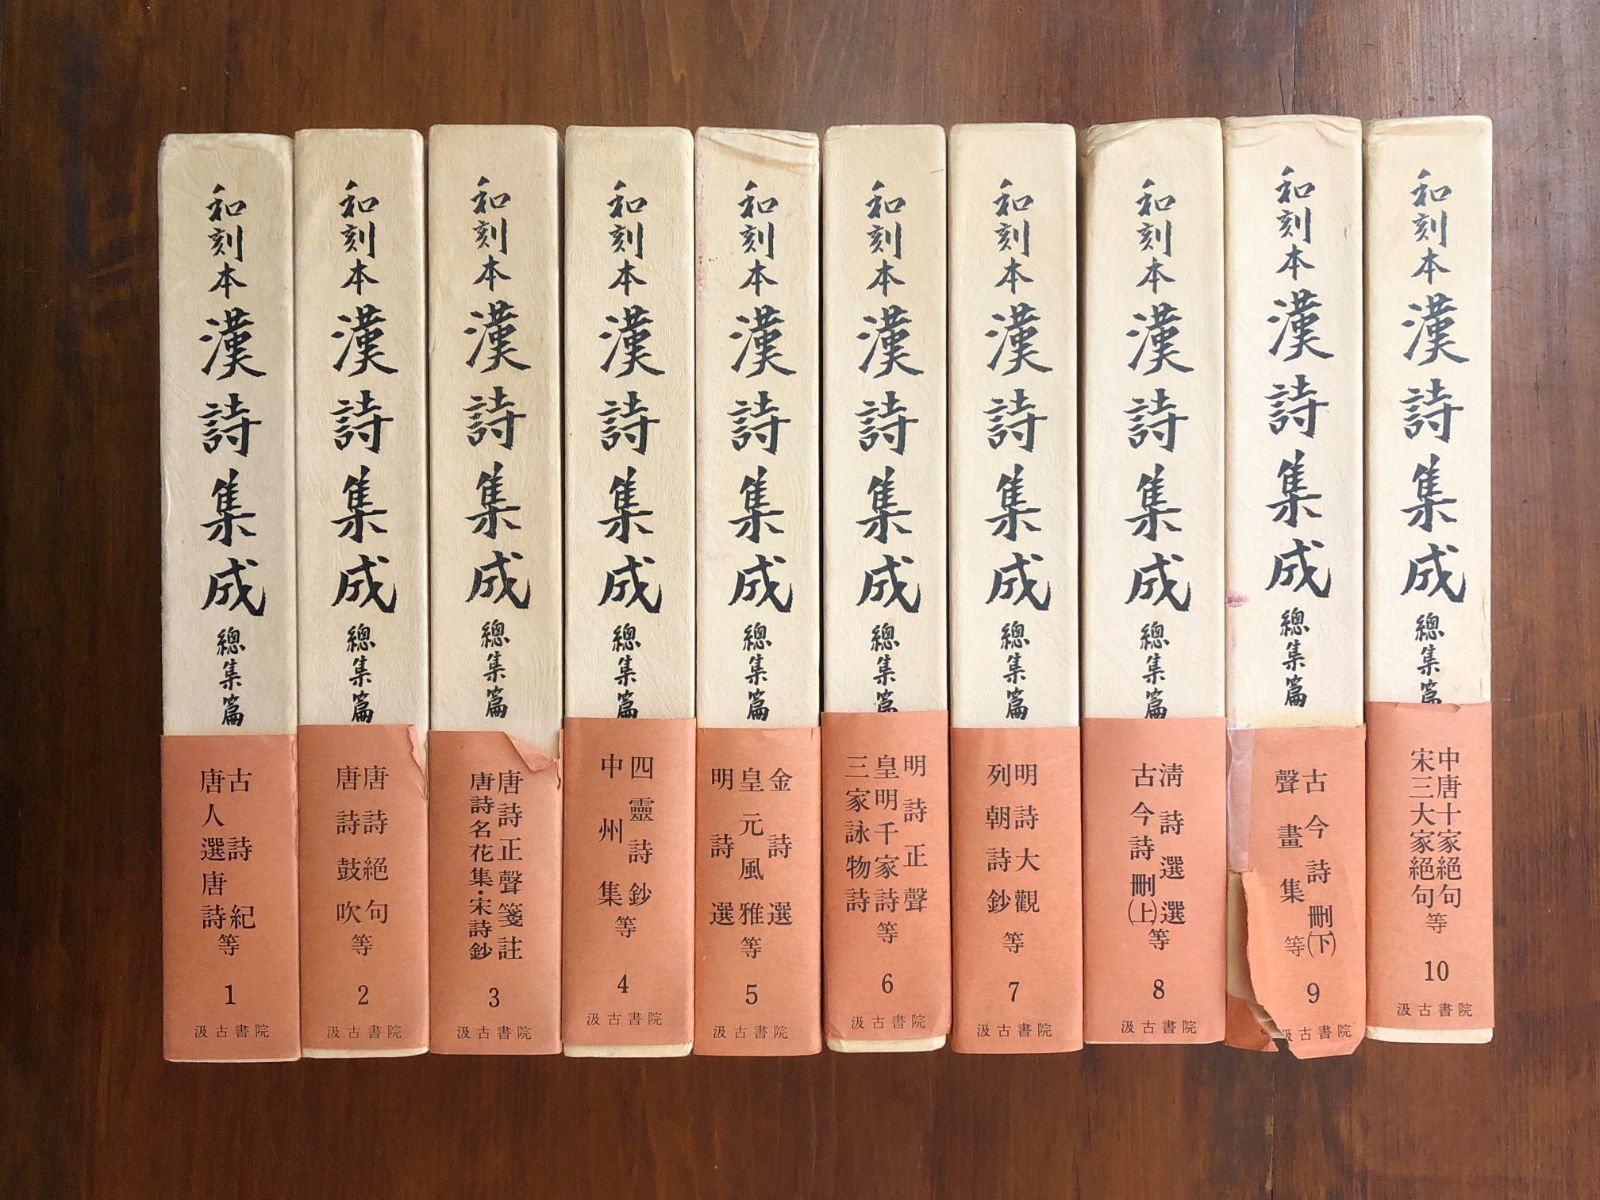 和刻本漢詩集成 總集篇
古詩紀
唐人選唐詩
等
1
汲古書院
和刻本漢詩集成 總集篇
唐詩絕句
唐詩鼓吹
等
2
汲古書院
和刻本漢詩集成 總集篇
唐詩正聲箋註
唐詩名花集・宋詩鈔
3
汲古書院
和刻本漢詩集成 總集篇
四靈詩鈔
中州集
等
4
汲古書院
和刻本漢詩集成 總集篇
金詩選
皇元風雅
明詩選
等
5
汲古書院
和刻本漢詩集成 總集篇
明詩正聲
皇明千家詩
三家詠物詩
等
6
汲古書院
和刻本漢詩集成 總集篇
明詩大觀
列朝詩鈔
等
7
汲古書院
和刻本漢詩集成 總集篇
淸詩選選
古今詩刪(上)
等
8
汲古書院
和刻本漢詩集成 總集篇
古今詩刪(下)
聲畫集
等
9
汲古書院
和刻本漢詩集成 總集篇
中唐十家絕句
宋三大家絕句
等
10
汲古書院